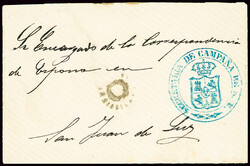 Sr Encargado de la Correspondencia
de España en
San Juan de Luz
DE CAMPAÑA DE S.